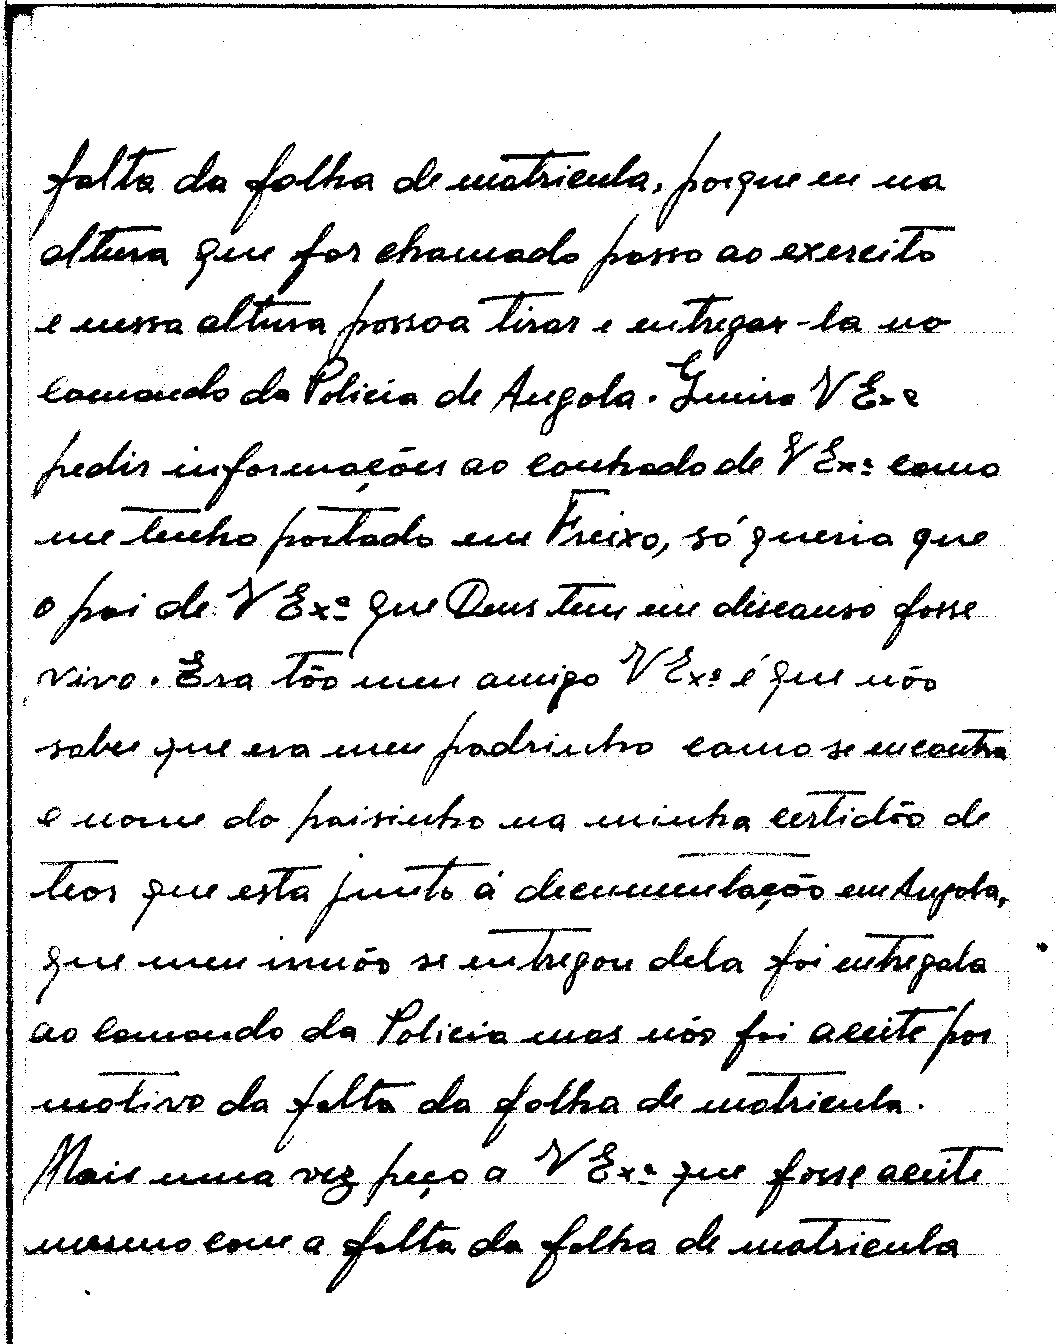 falta da folha de matricula, porque eu na
altura que for chamado passo ao exercito
e nessa altura possoa tirar e entregar-la no
Comando da Policia de Angola. Queira V Exª
pedir informações ao cunhado de V Exª como
me tenho portado em Freixo, só queria que
o pai de V Exª que Deus tem em discanso fosse
vivo. Era tão meu amigo V Exª é que não
sabe que era meu padrinho como se encontra
e nome do paisinho na minha certidão de
teor que esta junto á documentação em Angola,
que meu irmão se entregou dela foi entregada
ao Comando da Policia mas não foi aceite por
motivo da falta da folha de matricula.
Mais uma vez peço a V Exª que fosse aceite
mesmo com a falta da folha de matricula